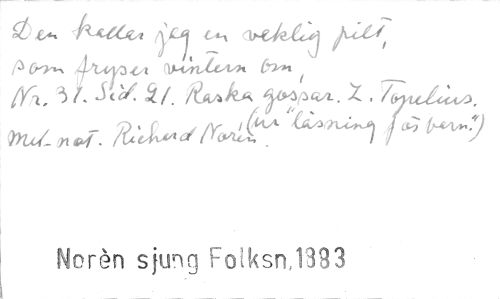 Den kallar jag en veklig pilt,
som fryser vintern om,
Nr. 31. Sid. 21. Raska gossar. Z. Topelius.
(ur "läsning för barn.")
Mel.-not. Richard Norén.
Norèn sjung Folksn,1883